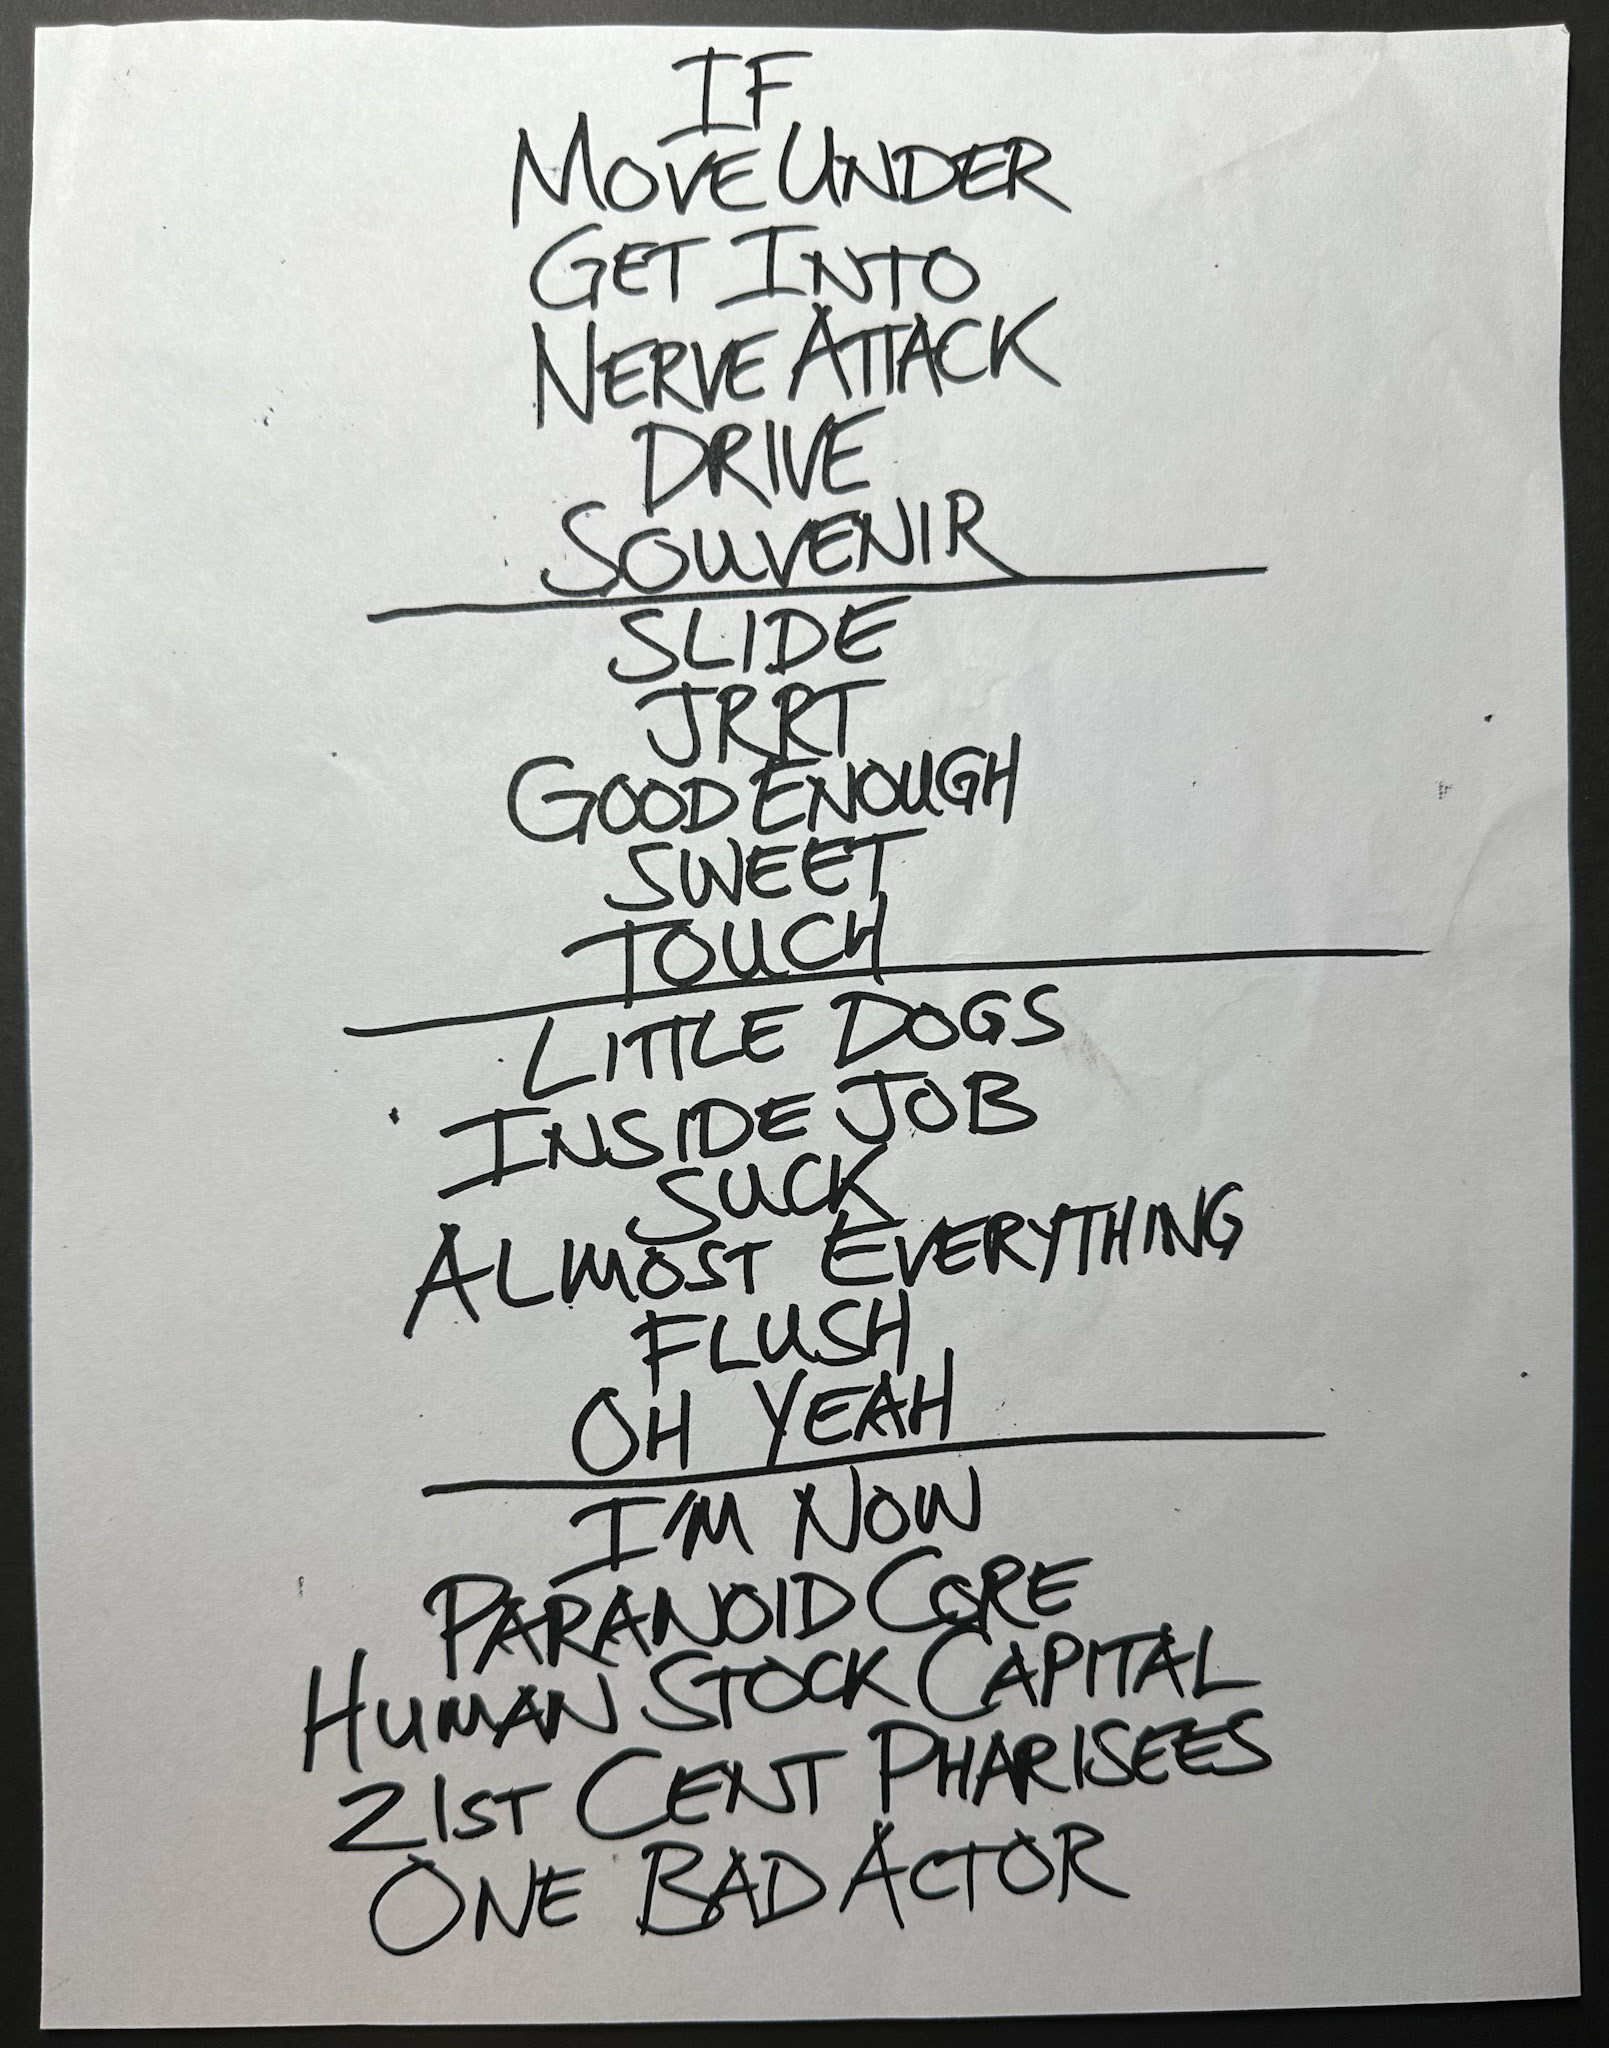 IF
MOVE UNDER
GET INTO
NERVE ATTACK
DRIVE
SOUVENIR
SLIDE
JRRT
GOOD ENOUGH
SWEET
TOUCH
LITTLE DOGS
INSIDE JOB
SUCK
ALMOST EVERYTHING
FLUSH
OH YEAH
I'M NOW
PARANOID CORE
HUMAN STOCK CAPITAL
21ST CENT PHARISEES
ONE BAD ACTOR